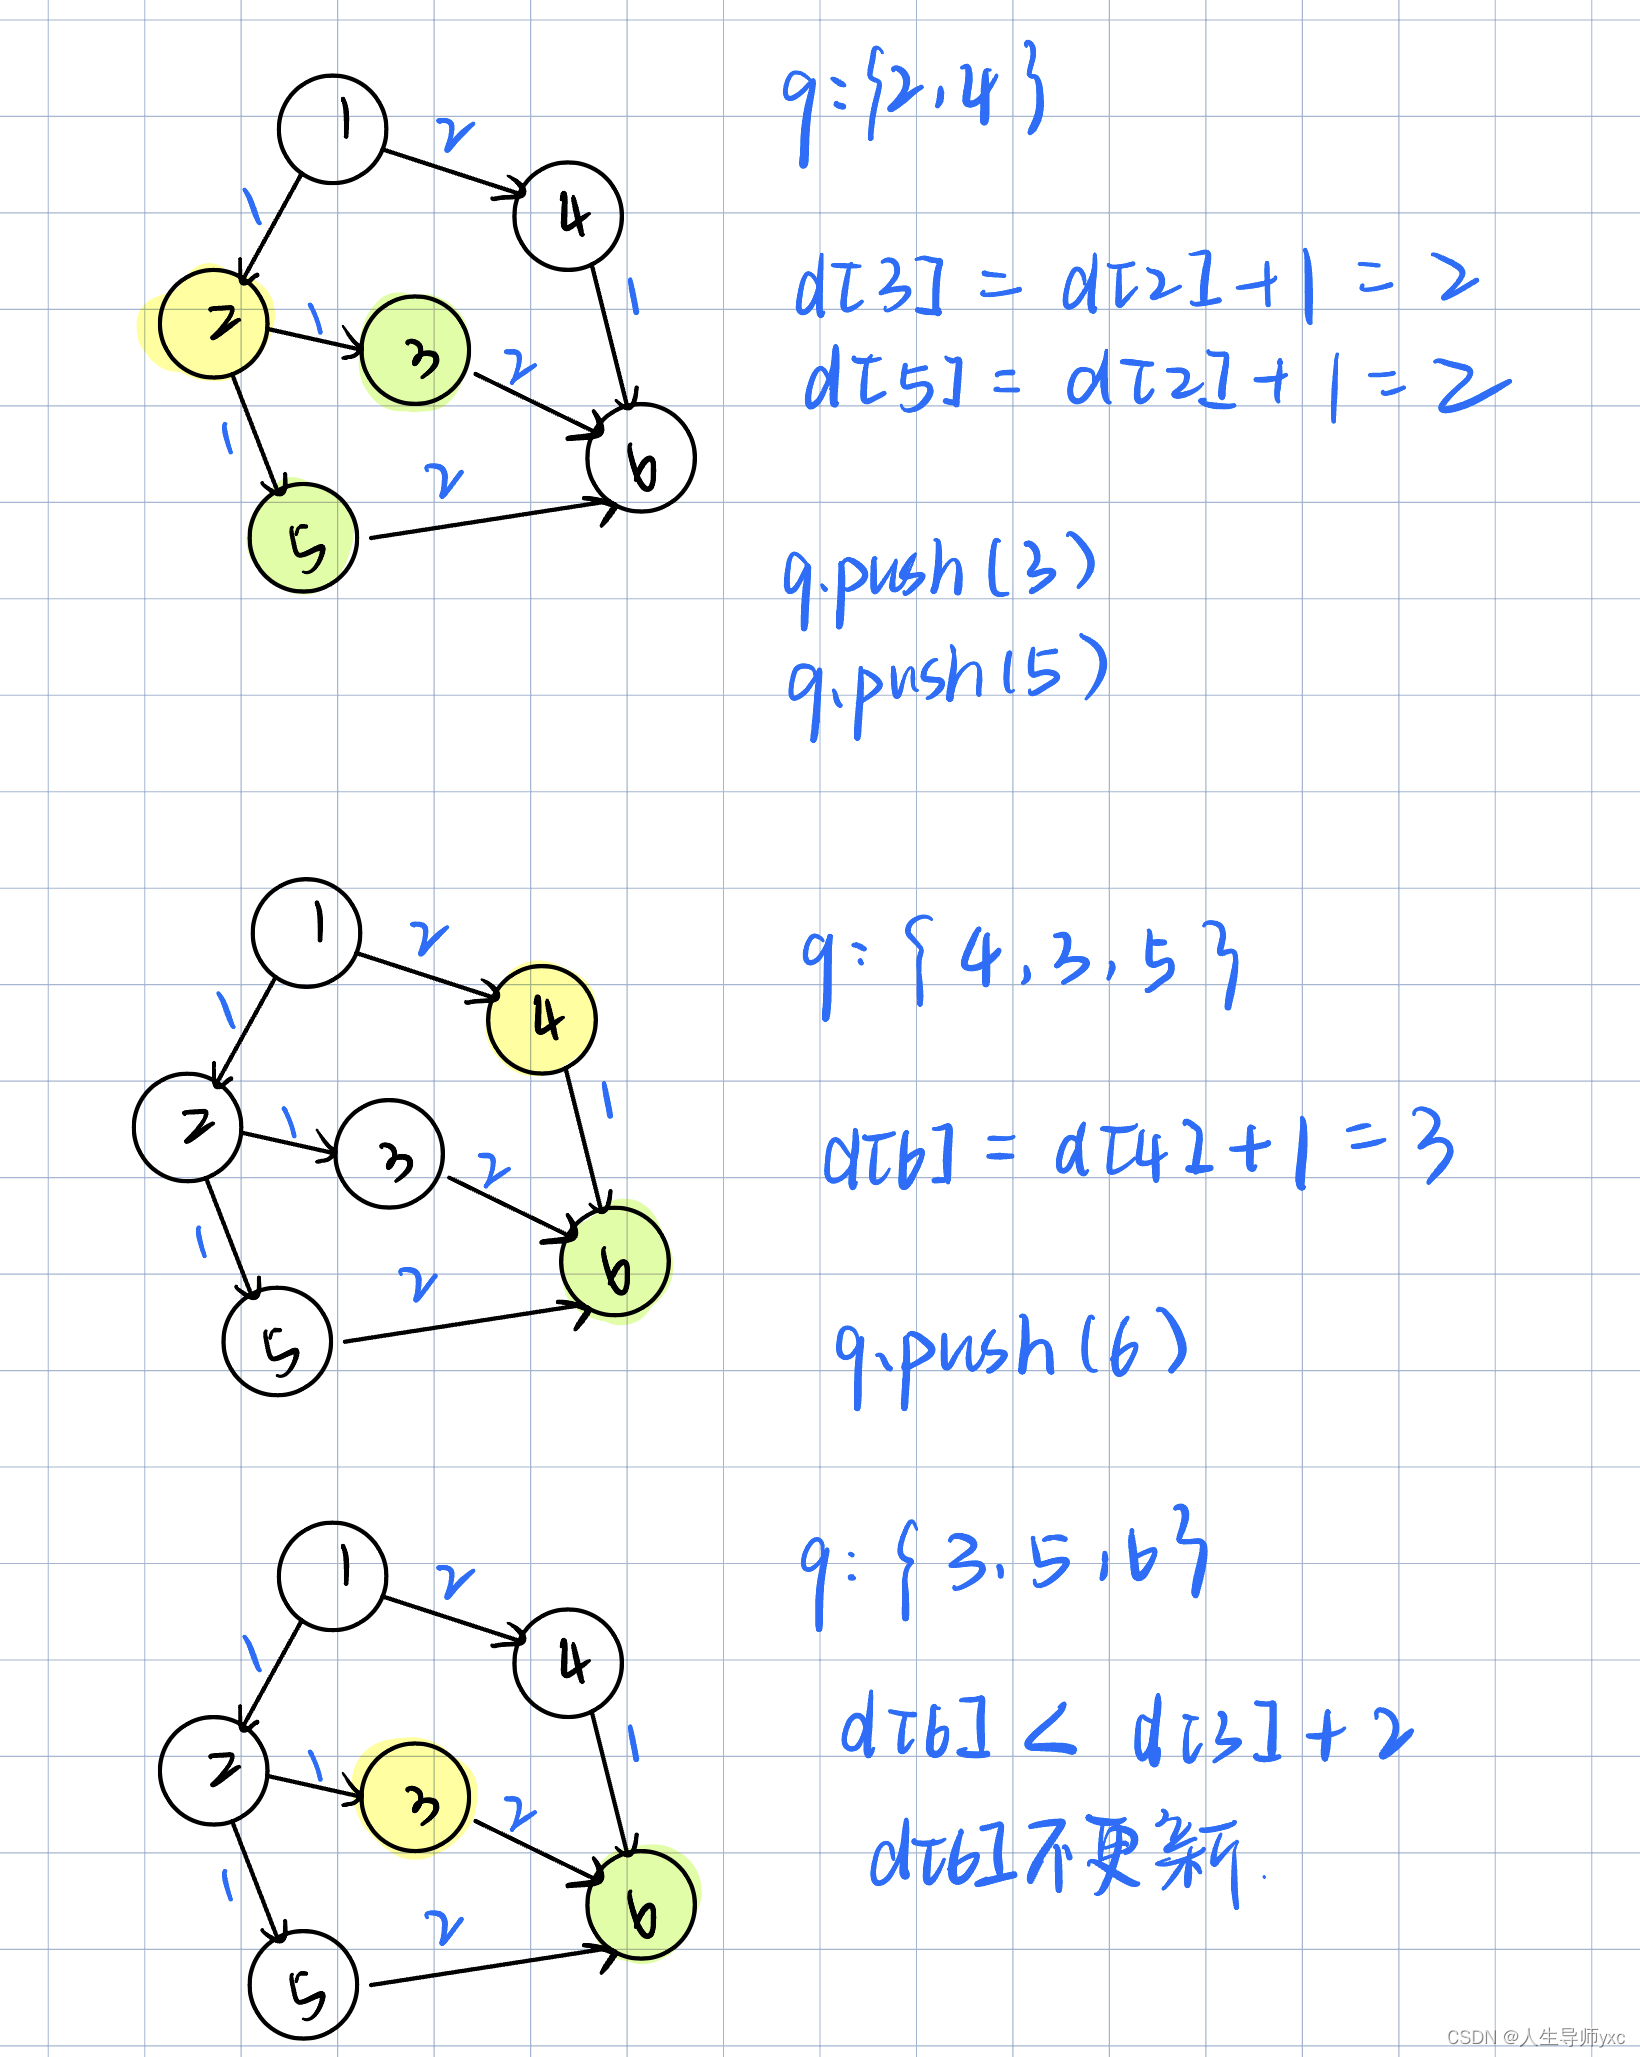 1
2
4
1
2
1
3
1
2
1
5
2
6
q:{2,4}
d[3] = d[2]+1=2
d[5] = d[2]+1=2
q.push(3)
q.push(5)
1
2
4
1
2
1
3
1
2
1
5
2
6
q:{4,3,5}
d[6] = d[4]+1=3
q.push(6)
1
2
4
1
2
1
3
1
2
1
5
2
6
q:{3,5,6}
d[6] < d[3]+2
d[6]不更新.
CSDN @人生导师yxc